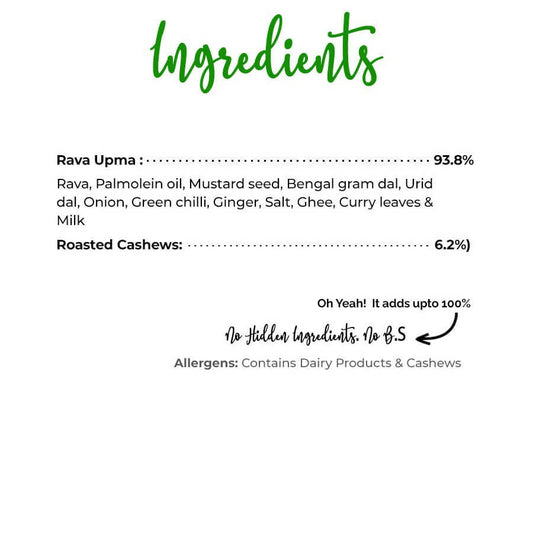 Ingredients
Rava Upma : 93.8%
Rava, Palmolein oil, Mustard seed, Bengal gram dal, Urid
dal, Onion, Green chilli, Ginger, Salt, Ghee, Curry leaves &
Milk
Roasted Cashews: 6.2%)
Oh Yeah! It adds upto 100%
No Hidden Ingredients. No B.S
Allergens: Contains Dairy Products & Cashews